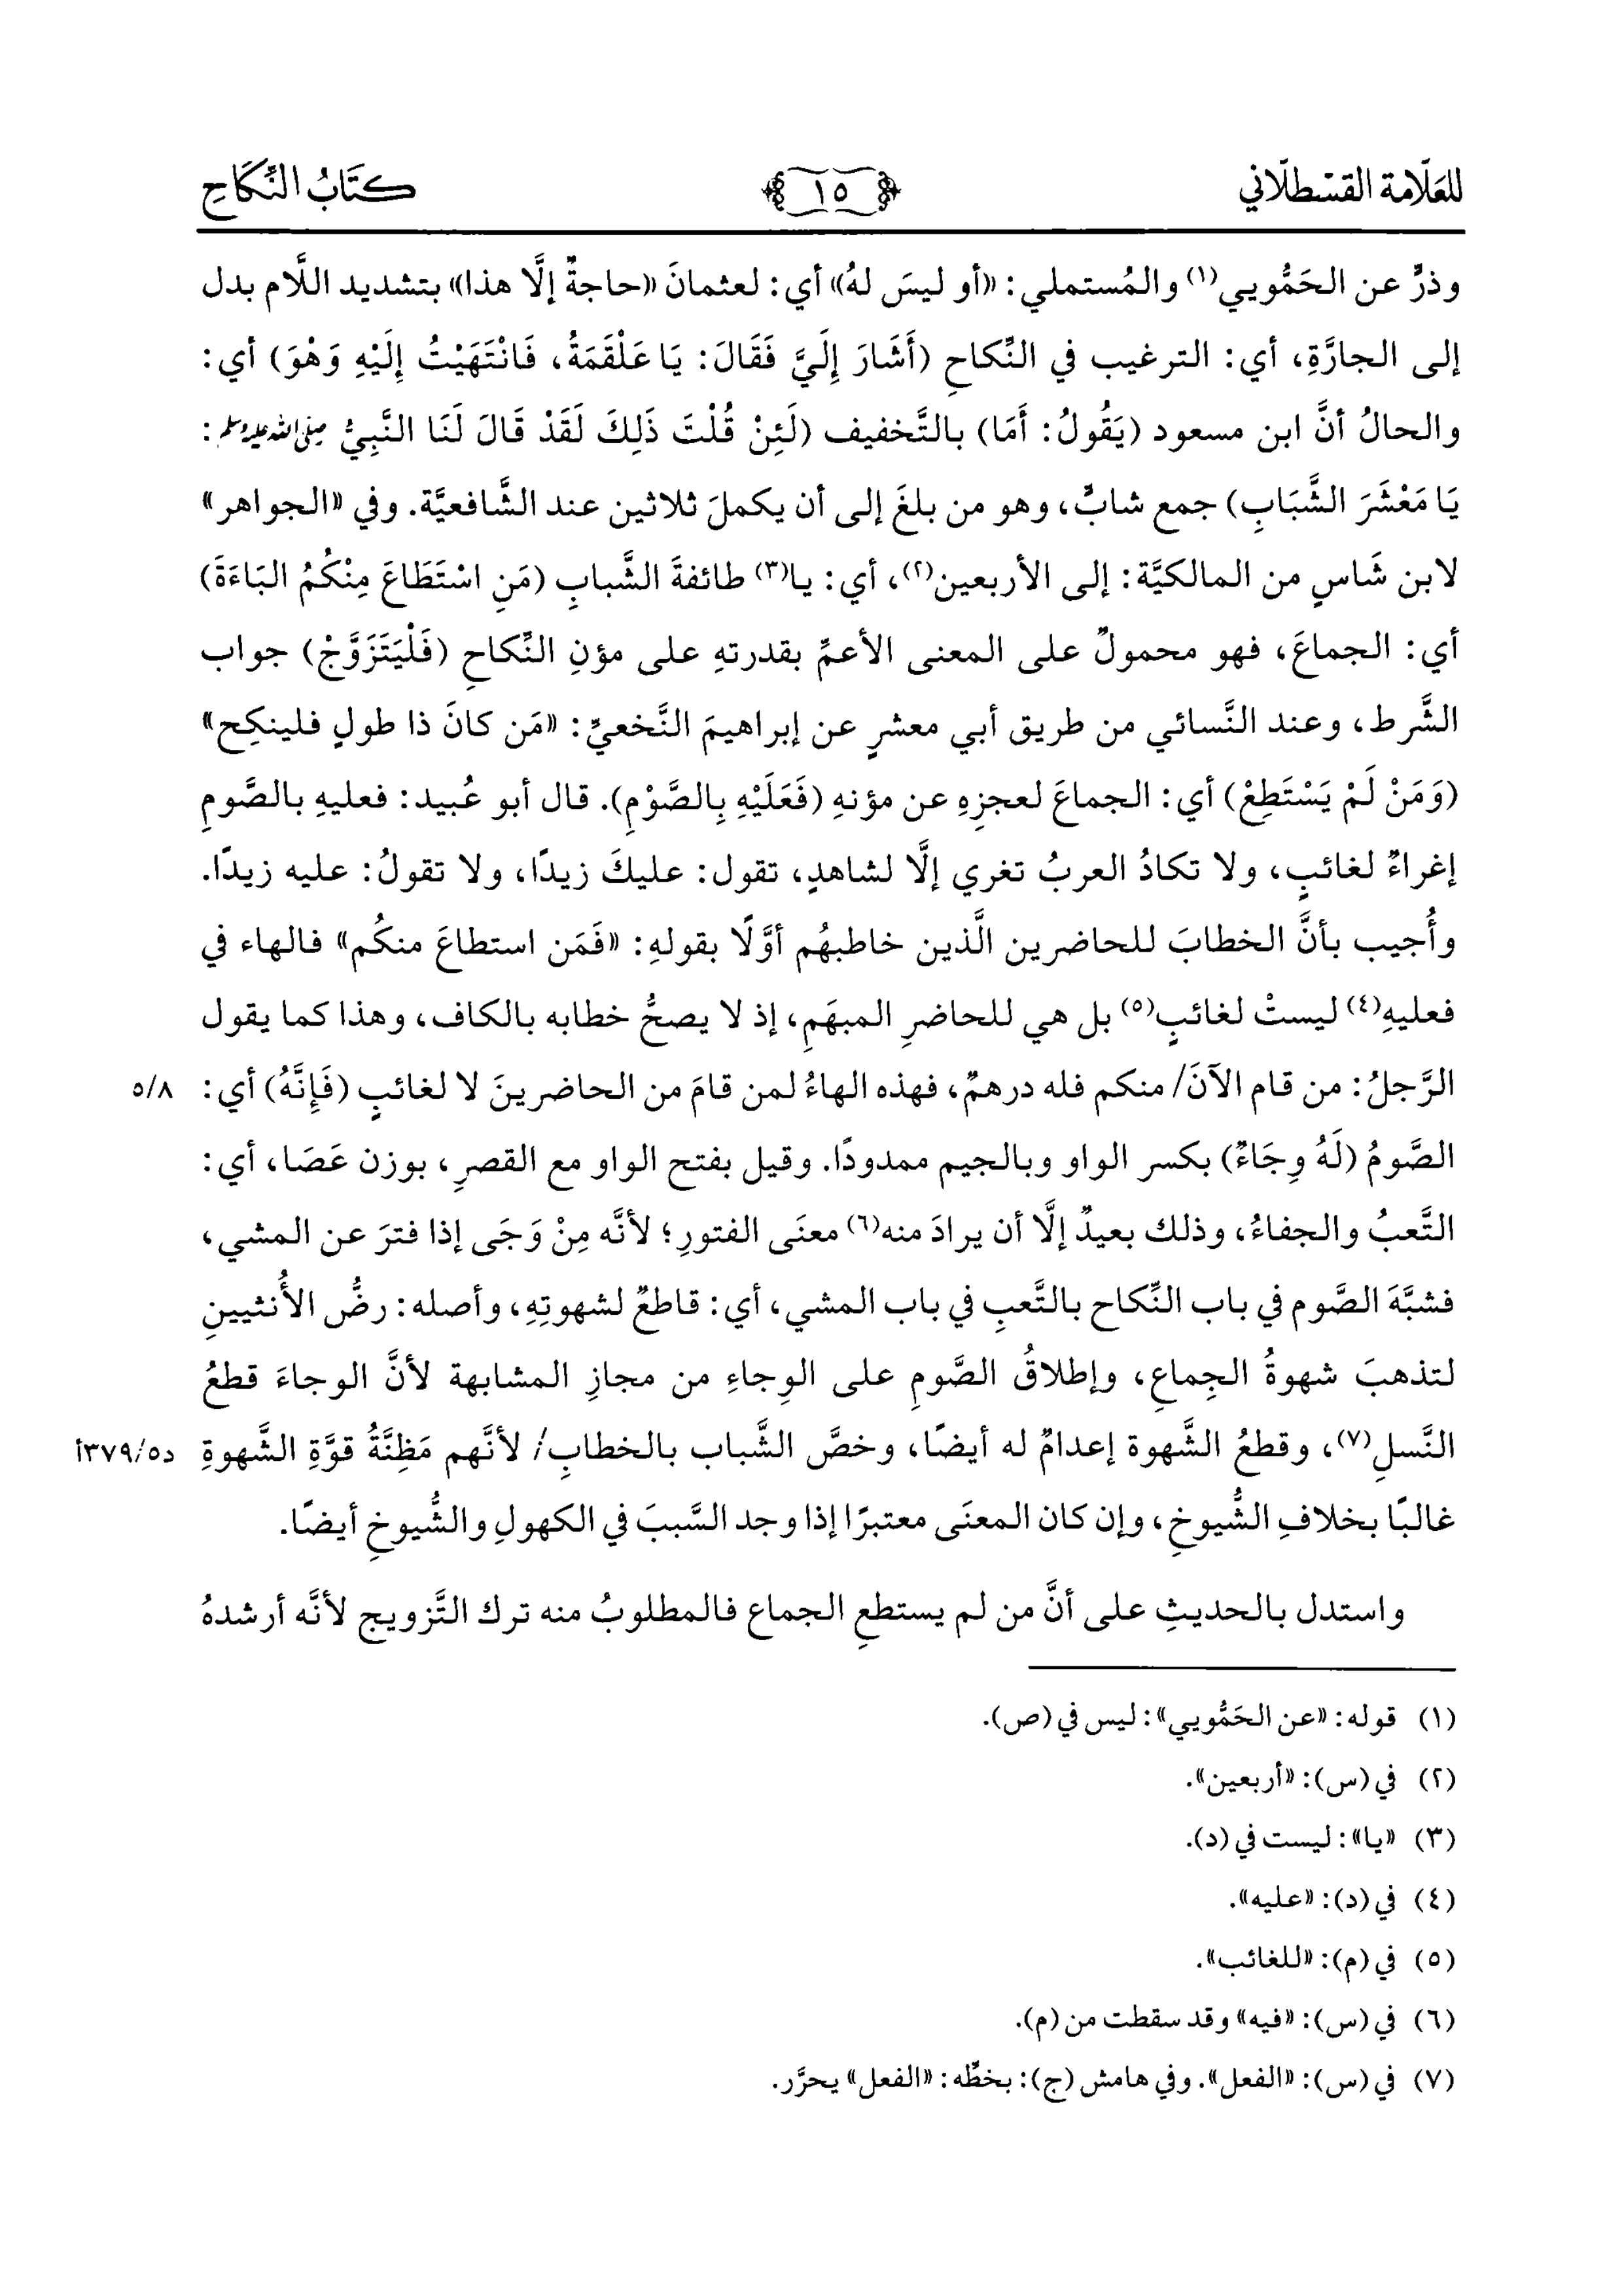 للعلّامة القسّطلّاني
١٥
كتَابُ النِّكَاحِ
وذرٍّ عن الحَمُّويي(١) والمُستملي: «أو ليسَ لهُ» أي: لعثمانَ «حاجةٌ إلَّا هذا» بتشديد اللَّام بدل
إلى الجارَّةِ، أي: الترغيب في النِّكاحِ (أَشَارَ إِلَيَّ فَقَالَ: يَا عَلْقَمَةُ، فَانْتَهَيْتُ إِلَيْهِ وَهْوَ) أي:
والحالُ أنَّ ابن مسعود (يَقُولُ: أَمَا) بالتَّخفيف (لَئِنْ قُلْتَ ذَلِكَ لَقَدْ قَالَ لَنَا النَّبِيُّ صلى الله عليه وسلم:
يَا مَعْشَرَ الشَّبَابِ) جمع شابٍّ، وهو من بلغَ إلى أن يكملَ ثلاثين عند الشَّافعيَّة. وفي «الجواهر»
لابن شَاسٍ من المالكيَّة: إلى الأربعين(٢)، أي: يا(٣) طائفةَ الشَّبابِ (مَنِ اسْتَطَاعَ مِنْكُمُ البَاءَةَ)
أي: الجماعَ، فهو محمولٌ على المعنى الأعمِّ بقدرتهِ على مؤنِ النِّكاحِ (فَلْيَتَزَوَّجْ) جواب
الشَّرط، وعند النَّسائي من طريق أبي معشرٍ عن إبراهيمَ النَّخعيِّ: «مَن كانَ ذا طولٍ فلينكِح»
(وَمَنْ لَمْ يَسْتَطِعْ) أي: الجماعَ لعجزِهِ عن مؤنهِ (فَعَلَيْهِ بِالصَّوْمِ). قال أبو عُبيد: فعليهِ بالصَّومِ
إغراءٌ لغائبٍ، ولا تكادُ العربُ تغري إلَّا لشاهدٍ، تقول: عليكَ زيدًا، ولا تقولُ: عليه زيدًا.
وأُجيب بأنَّ الخطابَ للحاضرين الَّذين خاطبهُم أوَّلًا بقولهِ: «فَمَن استطاعَ منكُم» فالهاء في
فعليهِ(٤) ليستْ لغائبٍ(٥) بل هي للحاضرِ المبهَمِ، إذ لا يصحُّ خطابه بالكاف، وهذا كما يقول
الرَّجلُ: من قام الآنَ/ منكم فله درهمٌ، فهذه الهاءُ لمن قامَ من الحاضرينَ لا لغائبٍ (فَإِنَّهُ) أي: ٥/٨
الصَّومُ (لَهُ وِجَاءٌ) بكسر الواو وبالجيم ممدودًا. وقيل بفتح الواو مع القصرِ، بوزن عَصَا، أي:
التَّعبُ والجفاءُ، وذلك بعيدٌ إلَّا أن يرادَ منه(٦) معنَى الفتورِ؛ لأنَّه مِنْ وَجَى إذا فترَ عن المشي،
فشبَّهَ الصَّوم في باب النِّكاح بالتَّعبِ في باب المشي، أي: قاطعٌ لشهوتِهِ، وأصله: رضُّ الأُنثيينِ
لتذهبَ شهوةُ الجِماعِ، وإطلاقُ الصَّومِ على الوِجاءِ من مجازِ المشابهة لأنَّ الوجاءَ قطعُ
النَّسلِ(٧)، وقطعُ الشَّهوة إعدامٌ له أيضًا، وخصَّ الشَّباب بالخطابِ/ لأنَّهم مَظِنَّةُ قوَّةِ الشَّهوةِ د٣٧٩/٥أ
غالبًا بخلافِ الشُّيوخِ، وإن كان المعنَى معتبرًا إذا وجد السَّببَ في الكهولِ والشُّيوخِ أيضًا.
واستدل بالحديثِ على أنَّ من لم يستطعِ الجماع فالمطلوبُ منه ترك التَّزويج لأنَّه أرشدهُ
(١) قوله: «عن الحَمُّويي»: ليس في (ص).
(٢) في (س): «أربعين».
(٣) «يا»: ليست في (د).
(٤) في (د): «عليه».
(٥) في (م): «للغائب».
(٦) في (س): «فيه» وقد سقطت من (م).
(٧) في (س): «الفعل». وفي هامش (ج): بخطِّه: «الفعل» يحرَّر.